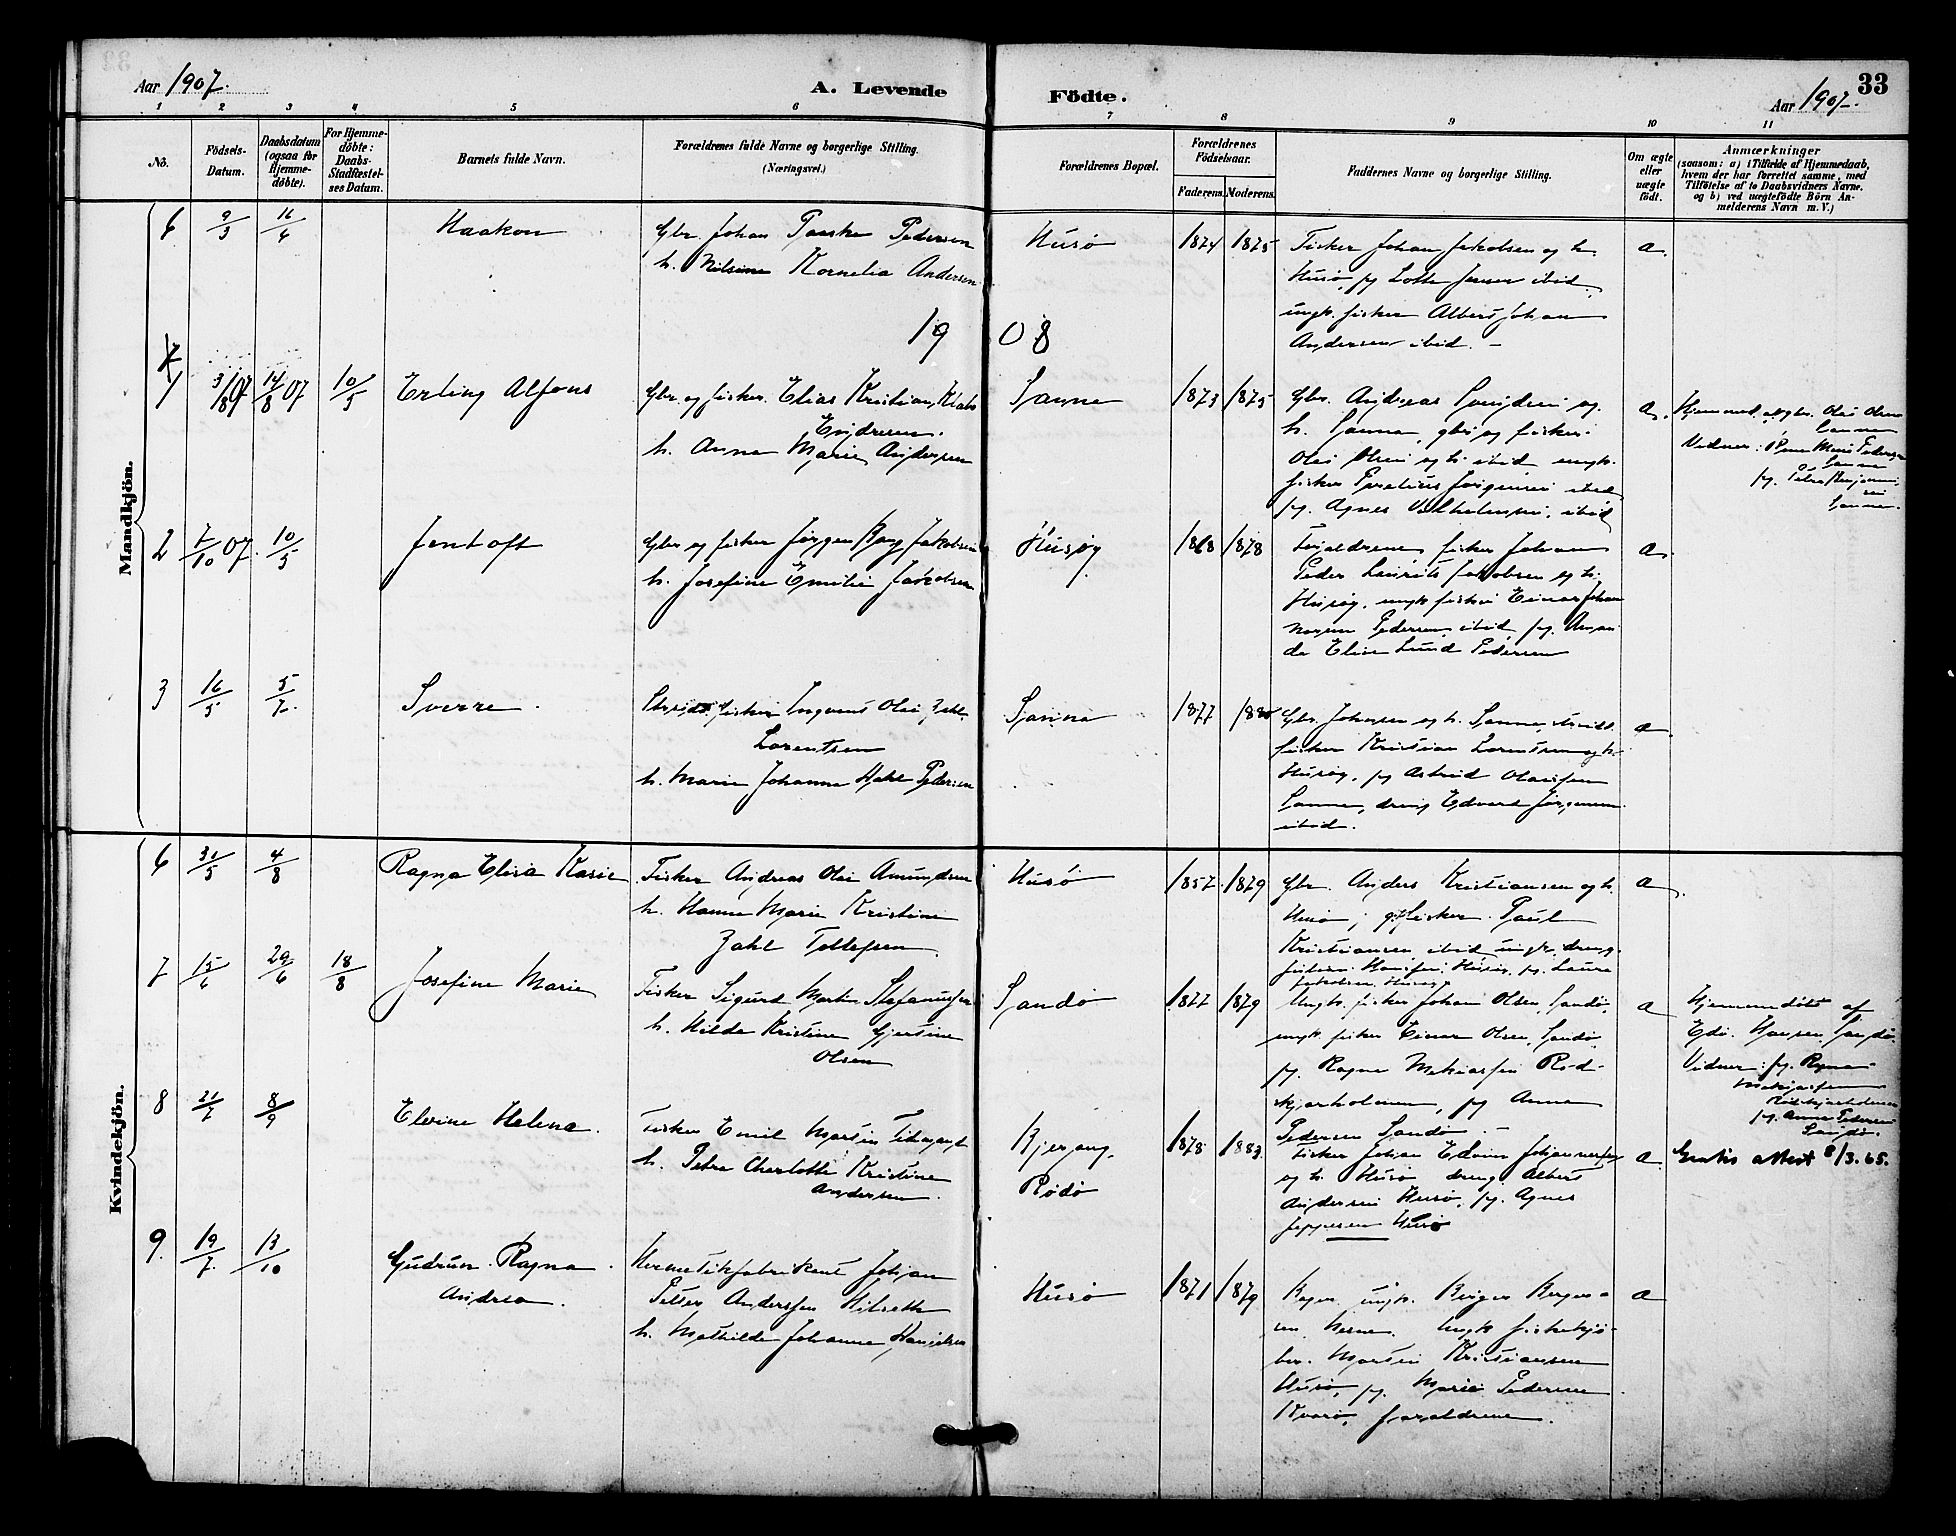 Aar 1907.
A. Levende
Födte.
Aar 1907.
33
1 2 3 4 5 6 7 8 9 10 11
No.
Födsels-
Datum.
Daabsdatum
(ogsaa for
Hjemme-
döbte).
For Hjemme-
döbte:
Daabs-
Stadfæstel-
ses Datum.
Barnets fulde Navn.
Forældrenes fulde Navne og borgerlige Stilling.
(Næringsvei.)
Forældrenes Bopæl.
Forældrenes
Födselsaar.
Faderens. Moderens.
Faddernes Navne og borgerlige Stilling.
Om ægte
eller
uægte
födt.
Anmærkninger
(saasom: a) i Tilfælde af Hjemmedaab,
hvem der har forrettet samme, med
Tilföielse af to Daabsvidners Navne.
og b) ved uægtefödte Börn An-
melderens Navn m. V.)
Mandkjön.
6 9/3 16/6 Haakon
Gbr. Johan Paaske Pedersen
h. Nilsine Kornelia Andersen
Husö 1874 1875
Fisker Johan Jakobsen og h.
Husö, pg Lotte Jensen ibid.
ungk. fisker Albert Johan
Andersen ibid. –
a.
1908
1 3/8 07 14/8 07 10/5 Erling Alfons
Gbr. og fisker. Elias Kristian
Endresen.
h. Anna Marie Andersen
Sanna 1873 1875
Gbr. Andreas og
h. Sanna, gbr og fisker
Olai Olsen og h. ibid ungk.
fisker Jørgensen ibid
pg. Agnes ibid
a.
Olai Olsen
Sanna
Vidner: Pedersen
Sanna
pg. Petra
Sanna.
2 7/10 07. 10/5 Jentoft
Gbr og fisker Jørgen Jakobsen
h. Josefine Emilie Jakobsen
Husøy 1868 1878
Forældrene, fisker Johan
Peder Laurits Jakobsen og h.
Husøy, ungk fisker Einar Johan
Pedersen, ibid, pg.
Eline Lund Pedersen
a.
3 16/5 5/7 Sverre.
fisker Ingvart Olai Zahl
Lorentsen
h. Marie Johanna Pedersen
Sanna 1877 1880
Gbr. Johansen og h. Sanna,
fisker Kristian Lorentsen og h.
Husøy, pg Astrid Olaisen
Sanna, dreng Edvard Jørgensen
ibid.
a.
Kvindekjön.
6 31/5 4/8 Ragna Elisa Karie
Fisker Andreas Olai Amundsen
h. Hanna Marie Kristine
Zahl Tollefsen
Husö 1857 1879
Gbr. Anders Kristiansen og h.
Husö; fisker. Paul
Kristiansen ibid ungk. dreng
Husøy, pg. Laura
Jakobsen Husøy
a.
7 15/6 29/6 18/8 Josefine Marie
Fisker Sigurd Martin Stefanussen
h. Hilda Kristine Gjertine
Olsen
Sandö 1877 1879
Ungk. fisker Johan Olsen, Sandö,
ungk. fisker Einar Olsen, Sandö.
pg. Ragna Mekiassen Röd-
skjærholmen, pg Anna
Pedersen Sandö.
a
Hjemmedöbt af
Edv. Hansen Sandö.
Vidner: pg. Ragna
Mekiassen
pg. Anna Pedersen
Sandö.
8 21/7 8/9 Elvine Helena.
Fisker Emil Martin
h. Petra Charlotte Kristine
Andersen.
Kjerang.
Rödö
1878 1883.
Fisker Johan Edvin Johannessen
og h. Husö dreng Albert
Andersen Husö, pg. Agnes
Jeppesen Husö
a.
Gratis attest 8/3.65.
9. 19/7. 13/10 Gudrun Ragna
Andrea.
Hermetikfabrikant Johan
Petter Anderssen Hilseth
h. Mathilde Johanna Danielsen
Husö 1871 1879
ungk. Birger
Ungk fiskekjö-
ber. Martin Kristiansen
Husö, pg. Marie Pedersen
Kvarö, forældrene.
a